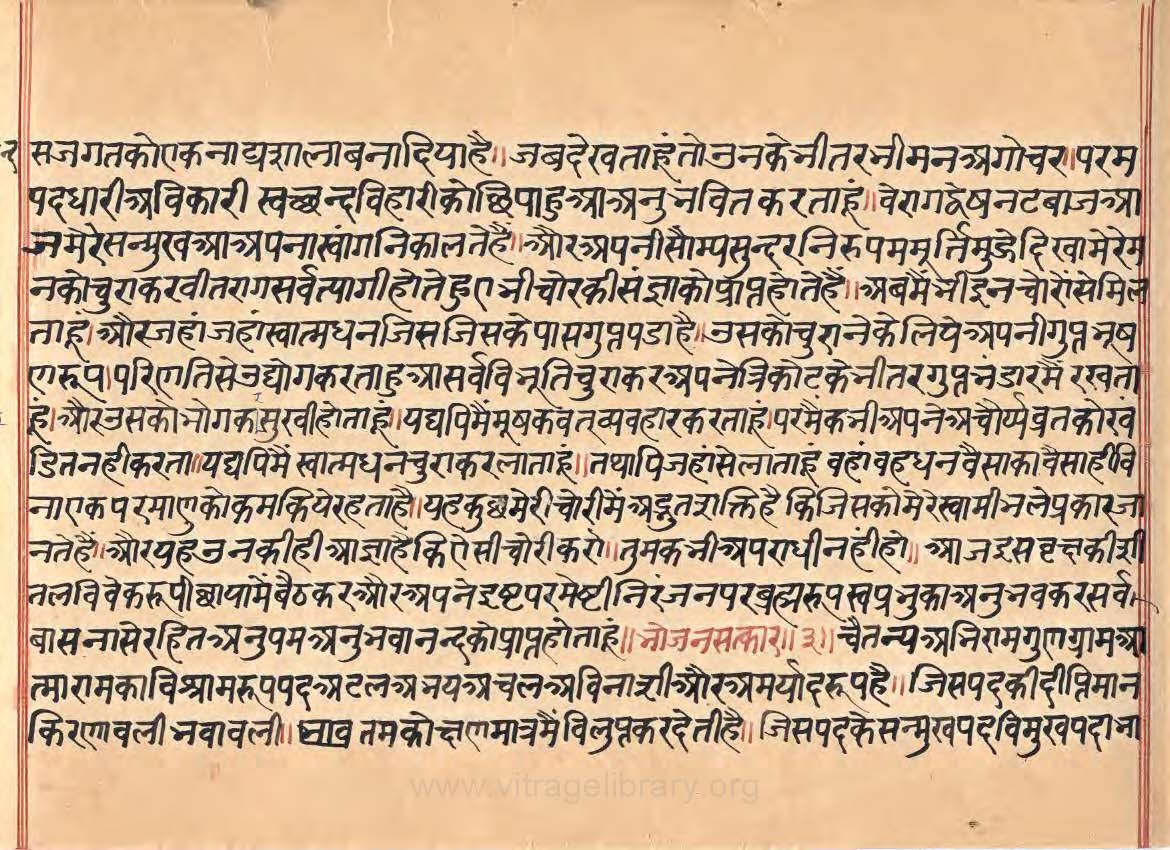 सजगतकोएकनाद्यशालाबनादियाहै॥ जबदेखताहूंतोउनकेभीतरभीमनअगोचर॥परम
पदधारीअविकारी स्वच्छन्दविहारीकोछिपाहुआअनुभवित करताहूं॥वेरागद्वेषनटबाजआ
जमेरेसन्मुखआअपनास्वांगनिकालतेहै॥औरअपनीसौम्यसुन्दरनिरुपममूर्त्तिमुझेदिखामेरेम
नकोचुराकरवीतरागसर्वत्यागीहोतेहुएभीचोरकीसंज्ञाकोप्राप्तहोतेहैं॥अबमैंभीइनचोरोंसेमिल
ताहूं।औरजहांजहांस्वात्मधनजिसजिसकेपासगुप्तपडाहै॥उसकोचुरानेकेलियेअपनीगुप्तभूष
णरूप।परिणतिसेउद्योगकरताहुआसर्वविभूतिचुराकरअपनेत्रिकोटकेभीतरगुप्तभंडारमैं रखता
हूं।औरउसकोभोगकसुखीहोताहूं॥यद्यपिमैंमूषकवतव्यवहारकरताहूं।परमैंकभीअपनेअचौर्य्यव्रतकोखं
डितनहीकरता॥यद्यपिमैं स्वात्मधनचुराकरलाताहूं॥तथापिजहांसेलाताहूं वहांवहधनवैसाकावैसाहीवि
नाएकपरमाणुकोकमकियेरहताहै॥यहकुछमेरीचोरीमेंअद्भुतशक्तिहै किजिसकोमेरेस्वामीभलेप्रकारजा
नतेहैं॥औरयहउनकीहीआज्ञाहैकिऐसीचोरीकरो॥तुमकभीअपराधीनहींहो॥ आजइसवृक्षकीशी
तलविवेकरूपीछायामेंबैठकरऔरअपनेइष्टपरमेष्टीनिरंजनपरब्रह्मरूपस्वप्रभुकाअनुभवकरसर्व
बासनासेरहितअनुपमअनुभवानन्दकोप्राप्तहोताहूं॥भोजनसत्कार॥३॥चैतन्यअभिरामगुणग्रामआ
त्मारामकाविश्रामरूपपदअटलअभयअचलअविनाशीऔरअमर्यादरूपहै॥जिसपदकीदीप्तिमान
किरणावलीभवावली॥भाव तमकोक्षणमात्रमैंविलुप्तकरदेतीहै॥जिसपदकेसन्मुखपदविमुखपदाभा
www.vitragelibrary.org